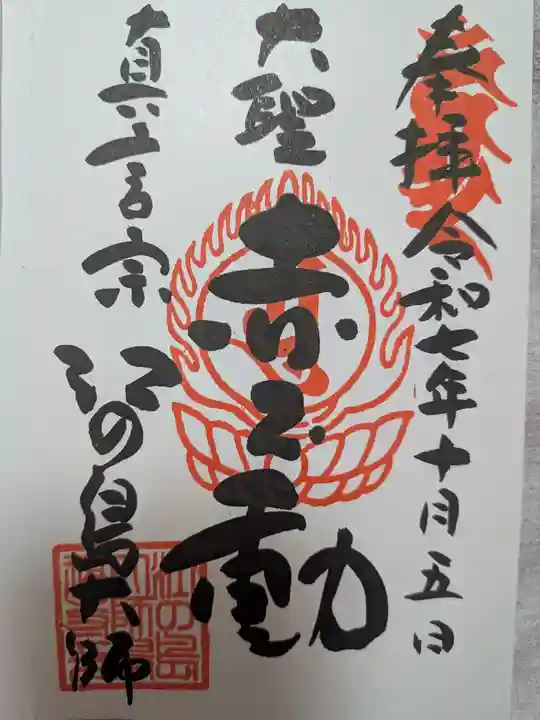 奉拝 令和七年十月五日
大聖
赤不動
真言宗
江の島大師